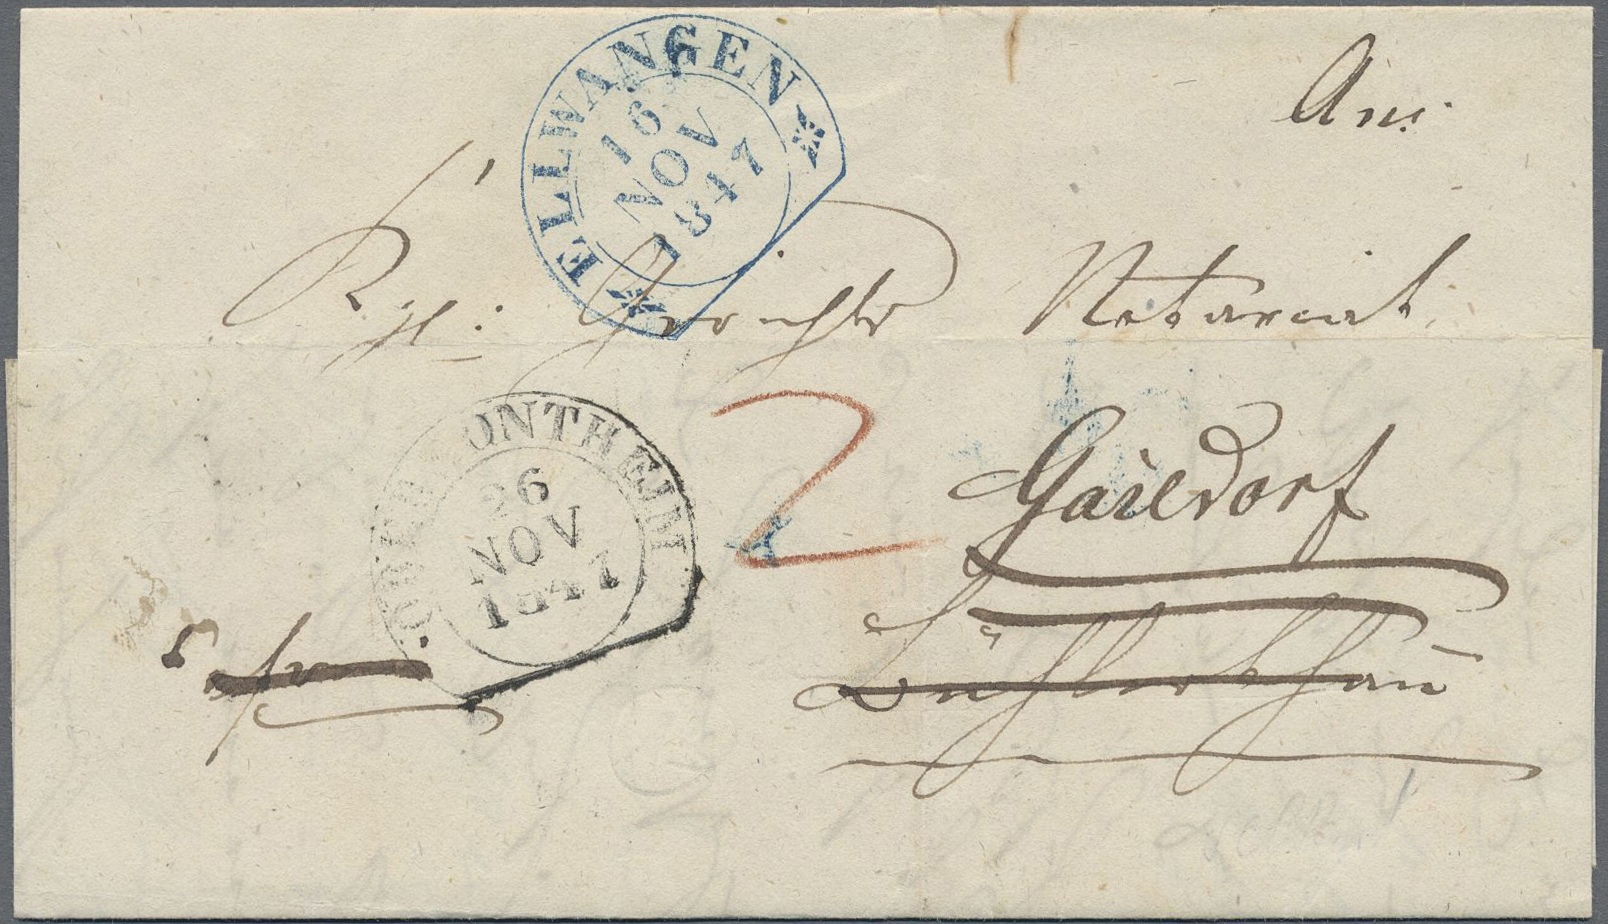 ELLWANGEN
16
NOV
1847
An
K. Gerichts Notariat
OBER SONTHEIM
26
NOV
1847
2
Gaildorf